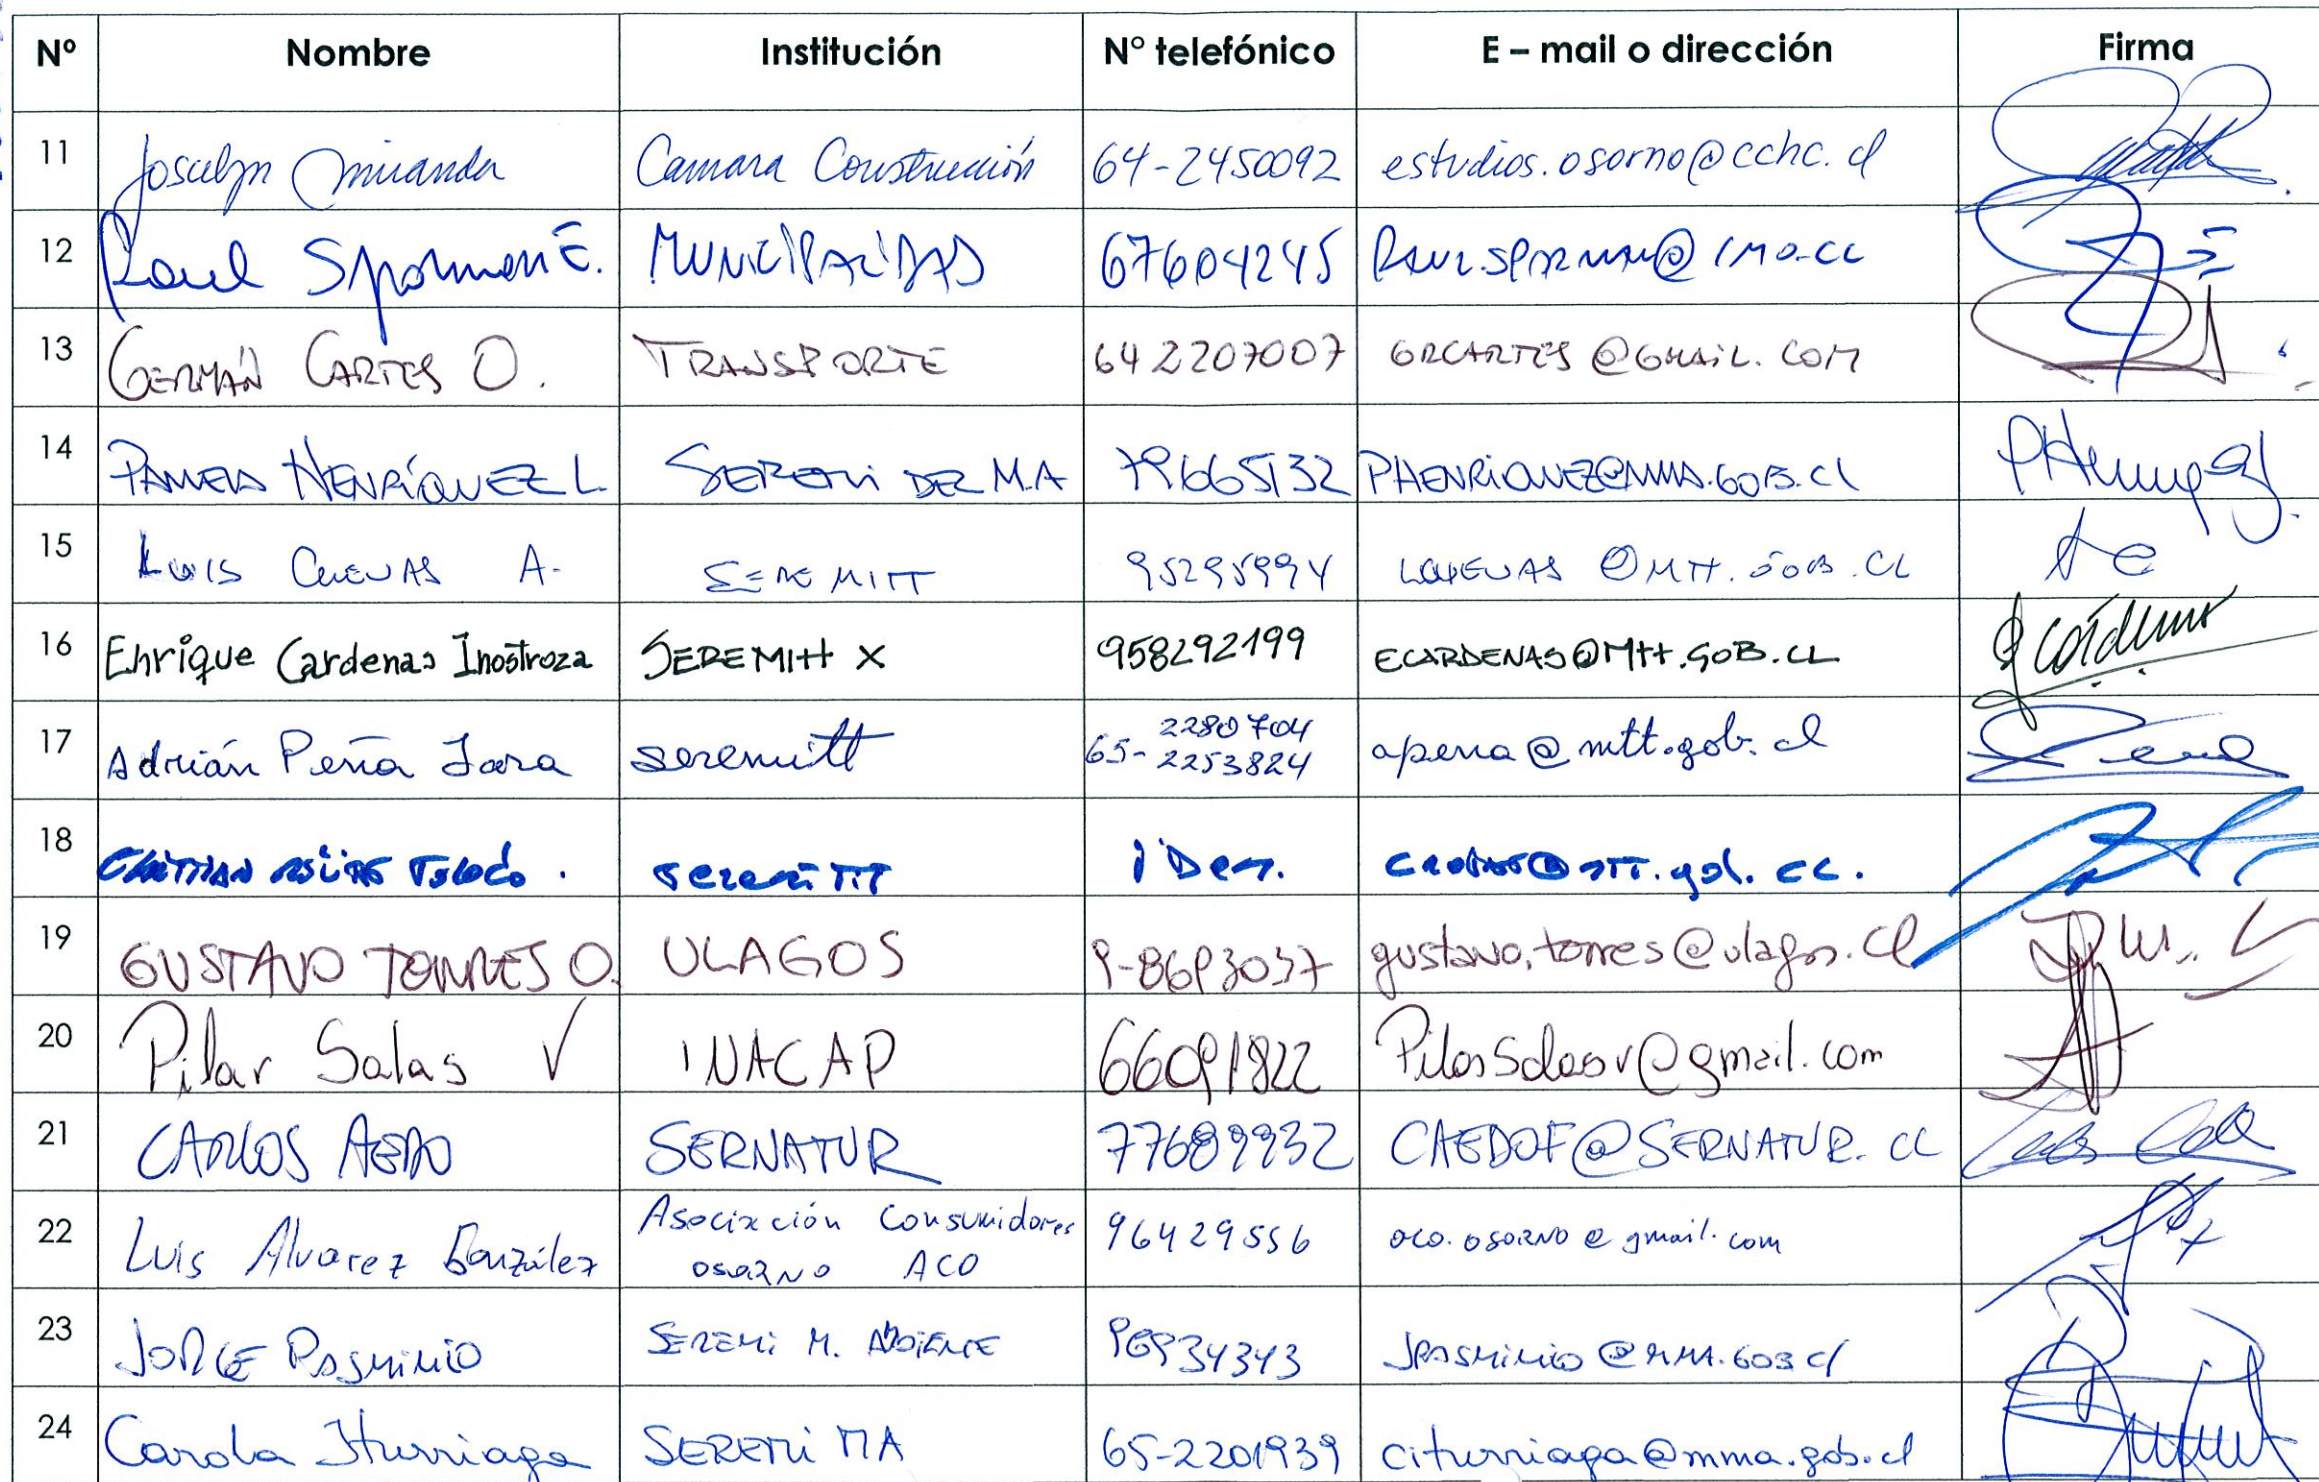 Nº Nombre Institución N° telefónico E – mail o dirección Firma
11 Joscelyn Miranda Camara Construcción 64-2450092 estudios.osorno@cchc.cl
12 Raul Sporman E. MUNICIPALIDAD 67604245 RAUL.SPORMAN@IMO.CL
13 GERMÁN CARTES O. TRANSPORTE 642207007 GRCARTES @GMAIL.COM
14 PAMELA HENRÍQUEZ L. SEREMI DEL M.A 79665132 PHENRIQUEZ@MMA.GOB.Cl
15 LUIS CUEVAS A. SEREMITT 95295994 LCUEVAS @MTT.GOB.CL
16 Enrique Cardenas Inostroza SEREMItt X 958292199 ECARDENAS@Mtt.GOB.CL
17 Adrián Peña Jara seremitt 65- 2280704 2253824 apena@mtt.gob.cl
18 Toledo. seremi TT iDem.
19 GUSTAVO TORRES O. ULAGOS 9-8693037 gustavo.torres@ulagos.cl
20 Pilar Salas V INACAP 66091822 PilarSalasv@gmail.com
21 CARLOS AEDO SERNATUR 77689932 CAEDOF@SERNATUR.CL
22 Luis Alvarez González Asociación Consumidores
OSORNO ACO 96429556 aco.osorno@gmail.com
23 JORGE PASMIÑIO SEREMI M. AMBIENTE 96934343 JPASMINIO@MMA.GOB Cl
24 Carola Iturriaga SEREMI MA 65-2201939 citurriaga@mma.gob.cl